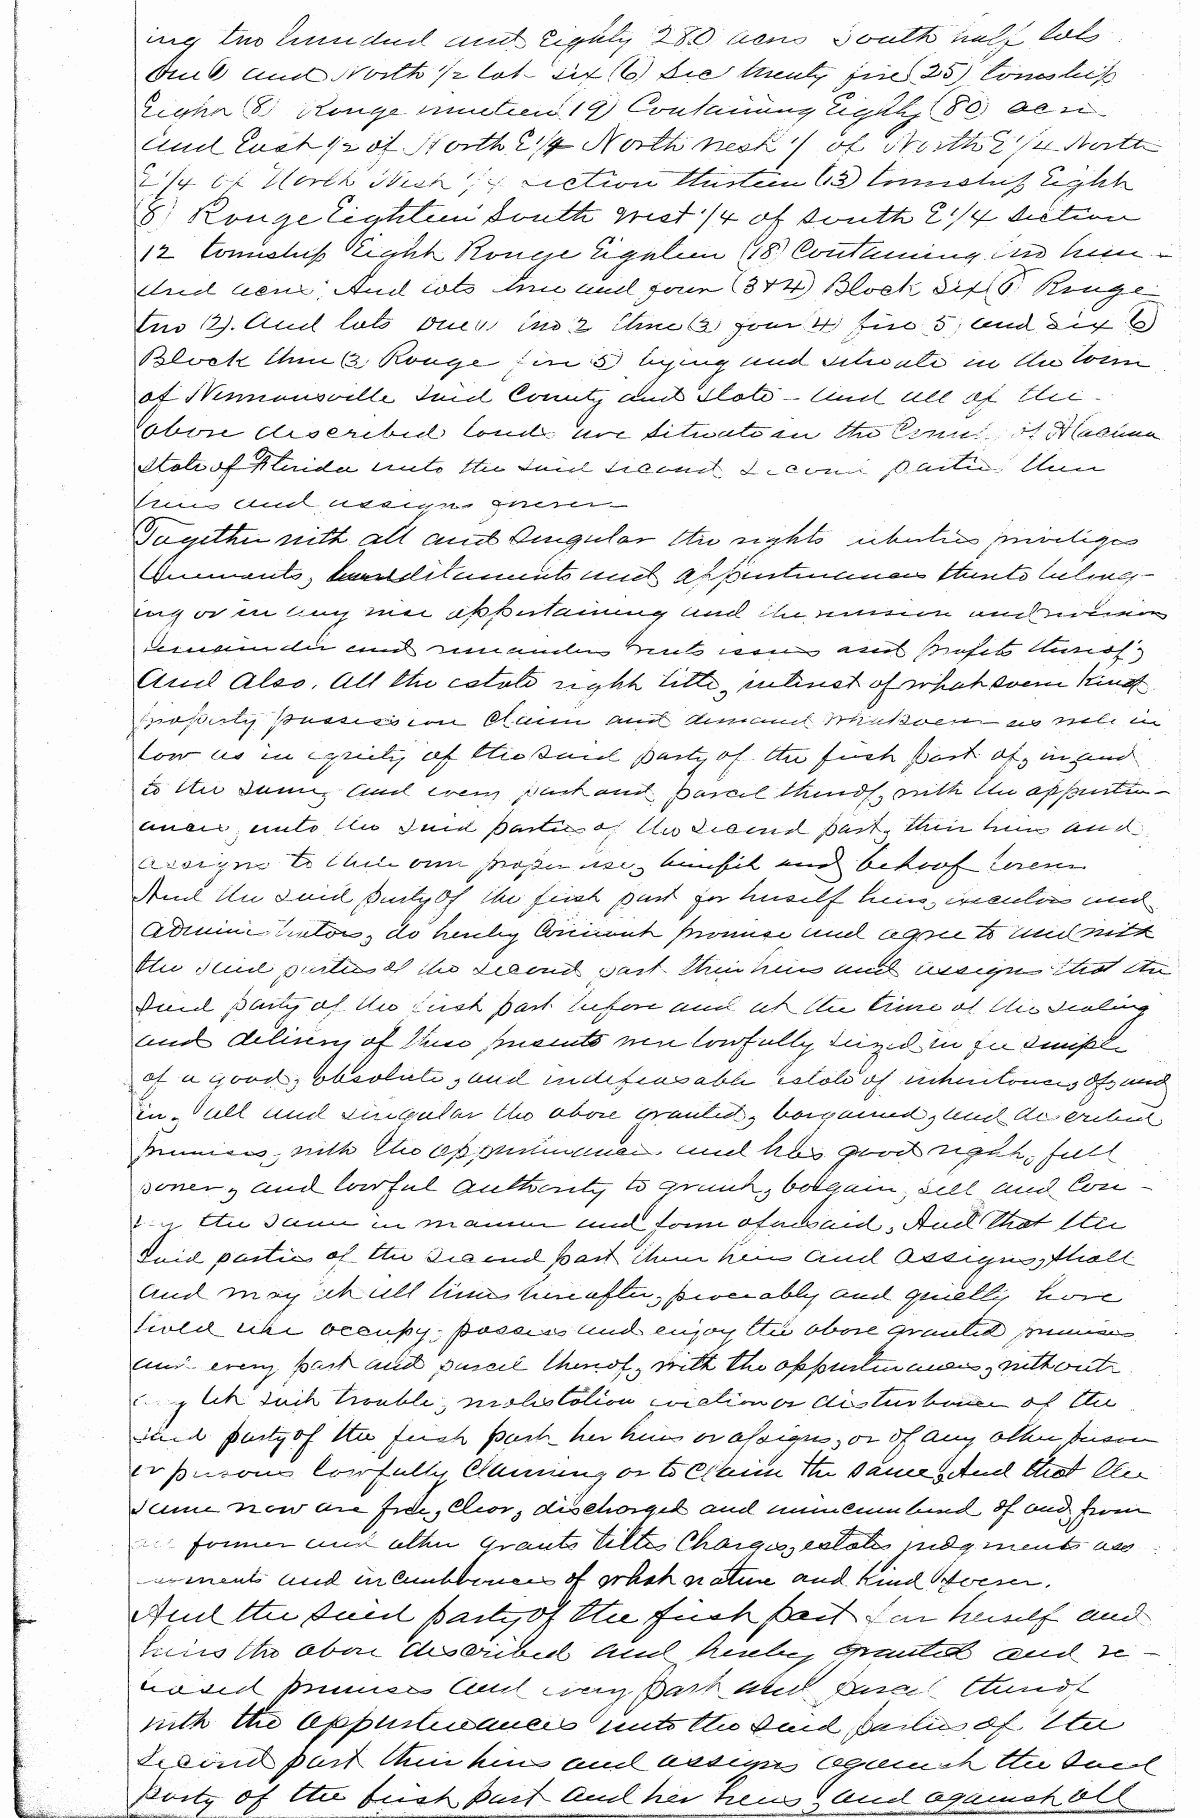 ing two hundred and Eighty 280 acres South half lots
One (1) and North 1/2 lot six (6) Sec twenty five (25) township
Eight (8) Range nineteen 19) Containing Eighty (80) acres
and East 1/2 of North E 1/4 North west 1/4 of North E 1/4 North
E 1/4 of North West 1/4 section thirteen (13) township Eight
(8) Range Eighteen South west 1/4 of South E 1/4 Section
12 township Eight Range Eighteen (18) Containing two hun-
dred acres; And lots three and four (3 & 4) Block Six (6) Range
two (2). And lots One 1) two 2 three (3) four 4) five 5) and six (6)
Block three (3) Range five 5) lying and situate in the town
of Newnansville said County and State - and all of the
above described lands are situate in the County of Alachua
State of Florida unto the said second second parties their
heirs and assigns forever
Together with all and Singular the rights liberties priviliges
tenements, hereditaments and appurtenances thereto belong-
ing or in any wise appertaining and the reversion and reversions
remainder and remainders rents issues and profits thereof;
And Also, All the estate right title, interest of whatsoever kind
property possession Claim and demand whatsoever as well in
law as in equity of the said party of the first part of, in and
to the same, and every part and parcel thereof, with the appurten-
ances, unto the said parties of the second part, their heirs and
assigns to their own proper use, benifit and behoof forever
And the said party of the first part for herself heirs, executors and
Administrators, do hereby Covenant promise and agree to and with
the said parties of the second part their heirs and assigns that the
said party of the first part before and at the time of the sealing
and delivery of these presents were lawfully seized in fee simple
of a good, absolute, and indefeasable estate of inheritance, of, and
in, all and singular the above granted, bargained, and described
premises, with the appurtenances and has good right, full
power, and lawful authority to grant, bargain, sell and Con-
vey the same in manner and form aforesaid, And that the
said parties of the second part their heirs and assigns, shall
and may at all times hereafter, peaceably and quietly have
hold use occupy, possess and enjoy the above granted premises
and every part and parcel thereof, with the appurtenances, without
any let suit trouble, molistation eviction or disturbance of the
said party of the first part her heirs or assigns, or of any other person
or persons lawfully Claiming or to Claim the same, And that the
same now are free, clear, discharged and unincumbered of and from
all former and other grants titles Charges, estates judgments ass
essments and incumbrances of what nature and kind soever.
And the said party of the first part for herself and
heirs the above described and hereby granted and re-
leased premises and every part and parcel thereof
with the appurtenances unto the said parties of the
second part their heirs and assigns against the said
party of the first part and her heirs, and against all